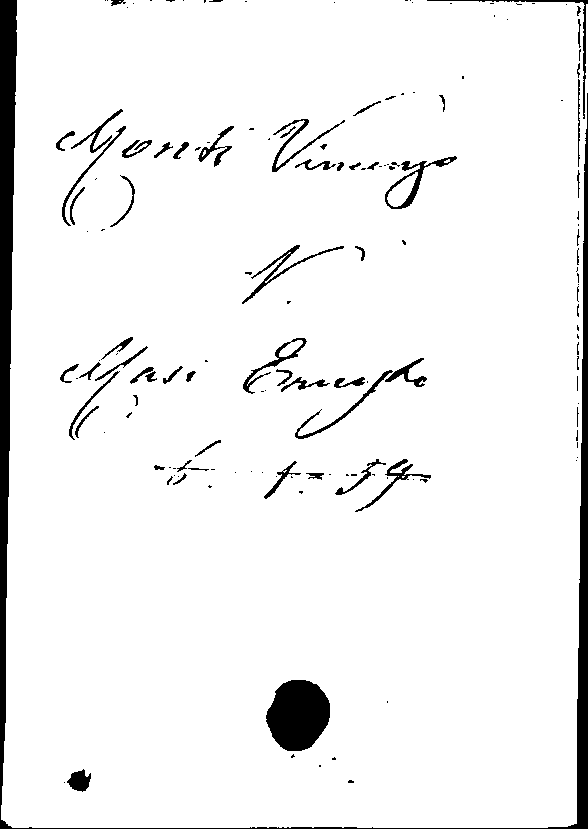 Monti Vincenzo
V.
Masi Ernesto
6. 1. 59